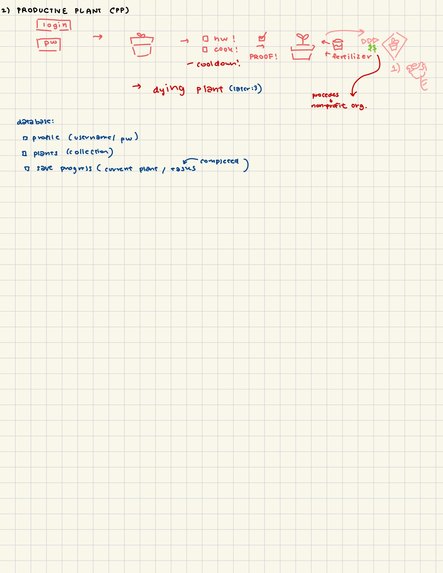 2) PRODUCTIVE PLANT (PP)
login
pw
→
→ □ hw!
□ cook!
- cooldown!
→
PROOF!
+ fertilizer
$$
1)
→ dying plant (later :3)
procedes
nonprofit org.
database:
□ profile (username/ pw)
□ plants (collection)
□ save progress (current plant / tasks completed)